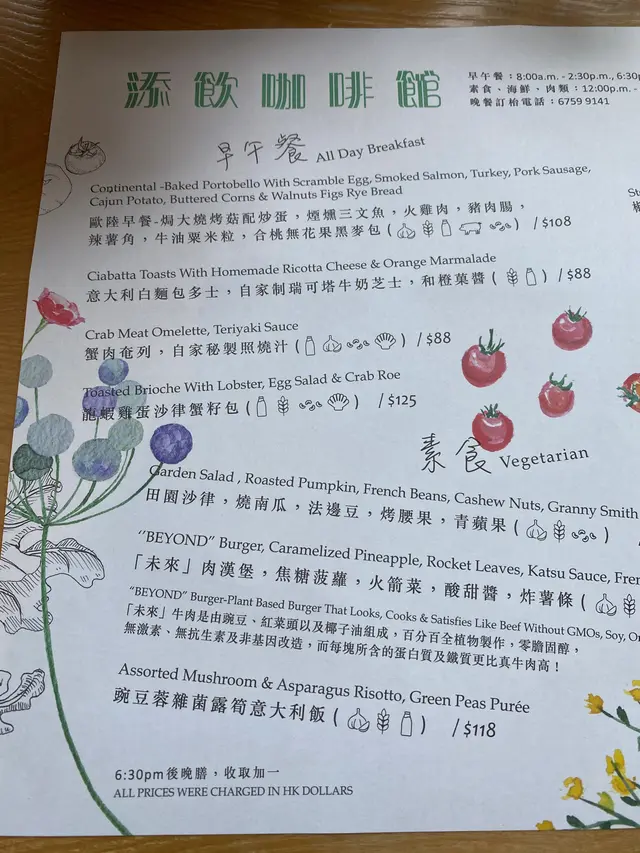 添飲咖啡館
早午餐：8:00a.m. - 2:30p.m., 6:30
素食、海鮮、肉類：12:00p.m. -
晚餐訂枱電話：6759 9141
早午餐 All Day Breakfast
Continental -Baked Portobello With Scramble Egg, Smoked Salmon, Turkey, Pork Sausage,
Cajun Potato, Buttered Corns & Walnuts Figs Rye Bread
歐陸早餐-焗大燒烤菇配炒蛋，煙燻三文魚，火雞肉，豬肉腸，
辣薯角，牛油粟米粒，合桃無花果黑麥包 ( ) / $108
Ciabatta Toasts With Homemade Ricotta Cheese & Orange Marmalade
意大利白麵包多士，自家制瑞可塔牛奶芝士，和橙菓醬 ( ) / $88
Crab Meat Omelette, Teriyaki Sauce
蟹肉奄列，自家秘製照燒汁 ( ) / $88
Toasted Brioche With Lobster, Egg Salad & Crab Roe
龍蝦雞蛋沙律蟹籽包 ( ) / $125
素食 Vegetarian
Garden Salad , Roasted Pumpkin, French Beans, Cashew Nuts, Granny Smith
田園沙律，燒南瓜，法邊豆，烤腰果，青蘋果 ( ) /
"BEYOND" Burger, Caramelized Pineapple, Rocket Leaves, Katsu Sauce,
「未來」肉漢堡，焦糖菠蘿，火箭菜，酸甜醬，炸薯條 (
"BEYOND" Burger-Plant Based Burger That Looks, Cooks & Satisfies Like Beef Without GMOs, Soy,
「未來」牛肉是由豌豆、紅菜頭以及椰子油組成，百分百全植物製作，零膽固醇，
無激素、無抗生素及非基因改造，而每塊所含的蛋白質及鐵質更比真牛肉高！
Assorted Mushroom & Asparagus Risotto, Green Peas Purée
豌豆蓉雜菌露筍意大利飯 ( ) / $118
6:30pm後晚膳，收取加一
ALL PRICES WERE CHARGED IN HK DOLLARS